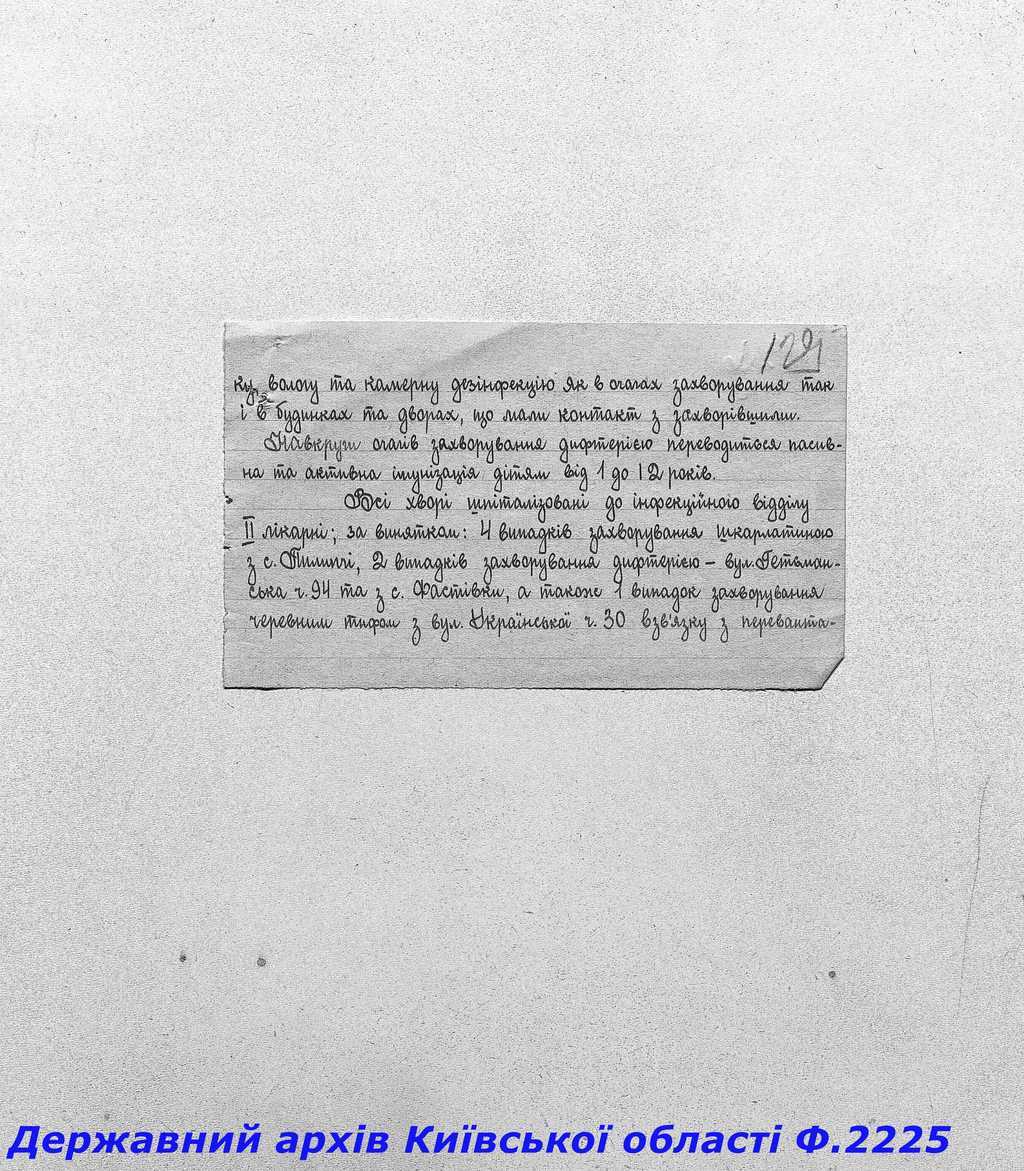 129
ку, вологу та камерну дезінфекцію як в очагах захворування так
і в будинках та дворах, що мали контакт з захворівшими.
Навкруги очагів захворування дифтерією переводиться пасив-
на та активна імунізація дітям від 1 до 12 років.
Всі хворі шпіталізовані до інфекційного відділу
II лікарні; за винятком: 4 випадків захворування шкарлатиною
з с. Пилипчі, 2 випадків захворування дифтерією – вул. Гетьман-
ська ч. 94 та з с. Фастівки, а також 1 випадок захворування
черевним тифом з вул. Української ч. 30 взв'язку з переванта-
Державний архів Київської області Ф.2225